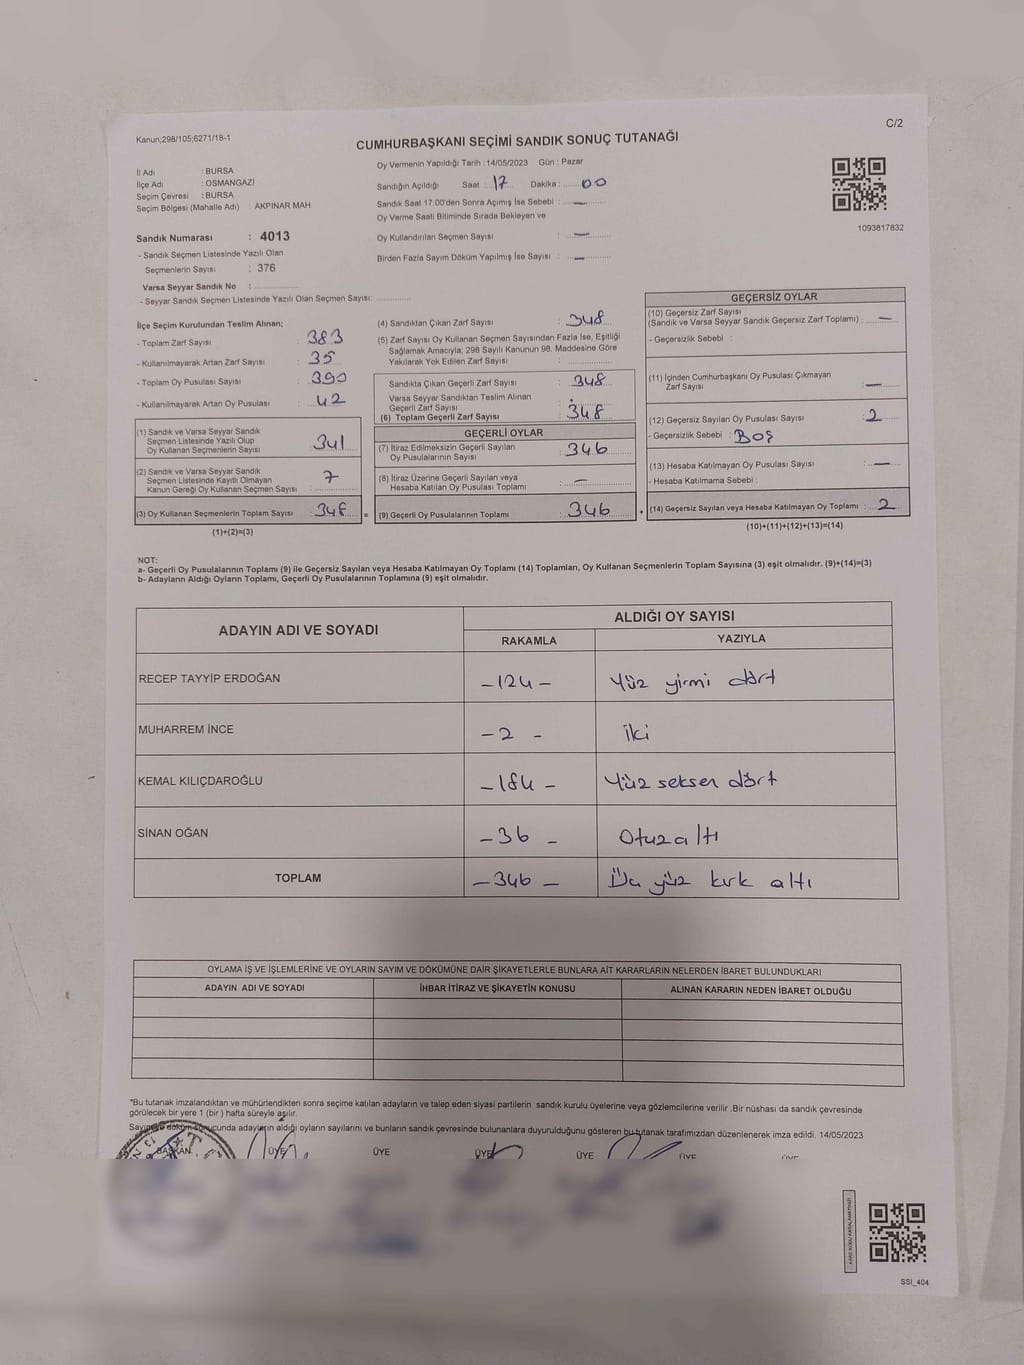 Kanun;298/105;6271/18-1
C/2
CUMHURBAŞKANI SEÇİMİ SANDIK SONUÇ TUTANAĞI
İl Adı : BURSA
İlçe Adı : OSMANGAZİ
Seçim Çevresi : BURSA
Seçim Bölgesi (Mahalle Adı) : AKPINAR MAH.
Sandık Numarası : 4013
- Sandık Seçmen Listesinde Yazılı Olan
Seçmenlerin Sayısı : 376
Varsa Seyyar Sandık No :
- Seyyar Sandık Seçmen Listesinde Yazılı Olan Seçmen Sayısı:
Oy Vermenin Yapıldığı Tarih : 14/05/2023 Gün : Pazar
Sandığın Açıldığı Saat : 17 Dakika : 00
Sandık Saat 17:00'den Sonra Açımış İse Sebebi : —
Oy Verme Saati Bitiminde Sırada Bekleyen ve
Oy Kullandırılan Seçmen Sayısı : —
Birden Fazla Sayım Döküm Yapılmış İse Sayısı : —
1093817832
İlçe Seçim Kurulundan Teslim Alınan;
- Toplam Zarf Sayısı : 383
- Kullanılmayarak Artan Zarf Sayısı : 35
- Toplam Oy Pusulası Sayısı : 390
- Kullanılmayarak Artan Oy Pusulası : 42
(1) Sandık ve Varsa Seyyar Sandık
Seçmen Listesinde Yazılı Olup
Oy Kullanan Seçmenlerin Sayısı : 341
(2) Sandık ve Varsa Seyyar Sandık
Seçmen Listesinde Kayıtlı Olmayan
Kanun Gereği Oy Kullanan Seçmen Sayısı : 7
(3) Oy Kullanan Seçmenlerin Toplam Sayısı : 348
(1)+(2)=(3)
(4) Sandıktan Çıkan Zarf Sayısı : 348
(5) Zarf Sayısı Oy Kullanan Seçmen Sayısından Fazla İse, Eşitliği
Sağlamak Amacıyla, 298 Sayılı Kanunun 98. Maddesine Göre
Yakılarak Yok Edilen Zarf Sayısı :
Sandıkta Çıkan Geçerli Zarf Sayısı : 348
Varsa Seyyar Sandıktan Teslim Alınan
Geçerli Zarf Sayısı :
(6) Toplam Geçerli Zarf Sayısı : 348
GEÇERLİ OYLAR
(7) İtiraz Edilmeksizin Geçerli Sayılan
Oy Pusulalarının Sayısı : 346
(8) İtiraz Üzerine Geçerli Sayılan veya
Hesaba Katılan Oy Pusulası Toplamı : —
(9) Geçerli Oy Pusulalarının Toplamı : 346
GEÇERSİZ OYLAR
(10) Geçersiz Zarf Sayısı
(Sandık ve Varsa Seyyar Sandık Geçersiz Zarf Toplamı) : —
- Geçersizlik Sebebi :
(11) İçinden Cumhurbaşkanı Oy Pusulası Çıkmayan
Zarf Sayısı : —
(12) Geçersiz Sayılan Oy Pusulası Sayısı : 2
- Geçersizlik Sebebi : BOŞ
(13) Hesaba Katılmayan Oy Pusulası Sayısı : —
- Hesaba Katılmama Sebebi :
(14) Geçersiz Sayılan veya Hesaba Katılmayan Oy Toplamı : 2
(10)+(11)+(12)+(13)=(14)
NOT:
a- Geçerli Oy Pusulalarının Toplamı (9) ile Geçersiz Sayılan veya Hesaba Katılmayan Oy Toplamı (14) Toplamları, Oy Kullanan Seçmenlerin Toplam Sayısına (3) eşit olmalıdır. (9)+(14)=(3)
b- Adayların Aldığı Oyların Toplamı, Geçerli Oy Pusulalarının Toplamına (9) eşit olmalıdır.
ADAYIN ADI VE SOYADI
ALDIĞI OY SAYISI
RAKAMLA YAZIYLA
RECEP TAYYİP ERDOĞAN -124- Yüz yirmi dört
MUHARREM İNCE -2- iki
KEMAL KILIÇDAROĞLU -184- Yüz seksen dört
SİNAN OĞAN -36- Otuz altı
TOPLAM -346- Üç yüz kırk altı
OYLAMA İŞ VE İŞLEMLERİNE VE OYLARIN SAYIM VE DÖKÜMÜNE DAİR ŞİKAYETLERLE BUNLARA AİT KARARLARIN NELERDEN İBARET BULUNDUKLARI
ADAYIN ADI VE SOYADI İHBAR İTİRAZ VE ŞİKAYETİN KONUSU ALINAN KARARIN NEDEN İBARET OLDUĞU
*Bu tutanak imzalandıktan ve mühürlendikten sonra seçime katılan adayların ve talep eden siyasi partilerin sandık kurulu üyelerine veya gözlemcilerine verilir .Bir nüshası da sandık çevresinde
görülecek bir yere 1 (bir ) hafta süreyle asılır.
Sayım ve döküm sonucunda adayların aldığı oyların sayılarını ve bunların sandık çevresinde bulunanlara duyurulduğunu gösteren bu tutanak tarafımızdan düzenlenerek imza edildi. 14/05/2023
BAŞKAN ÜYE ÜYE ÜYE ÜYE ÜYE ÜYE
SSİ_404